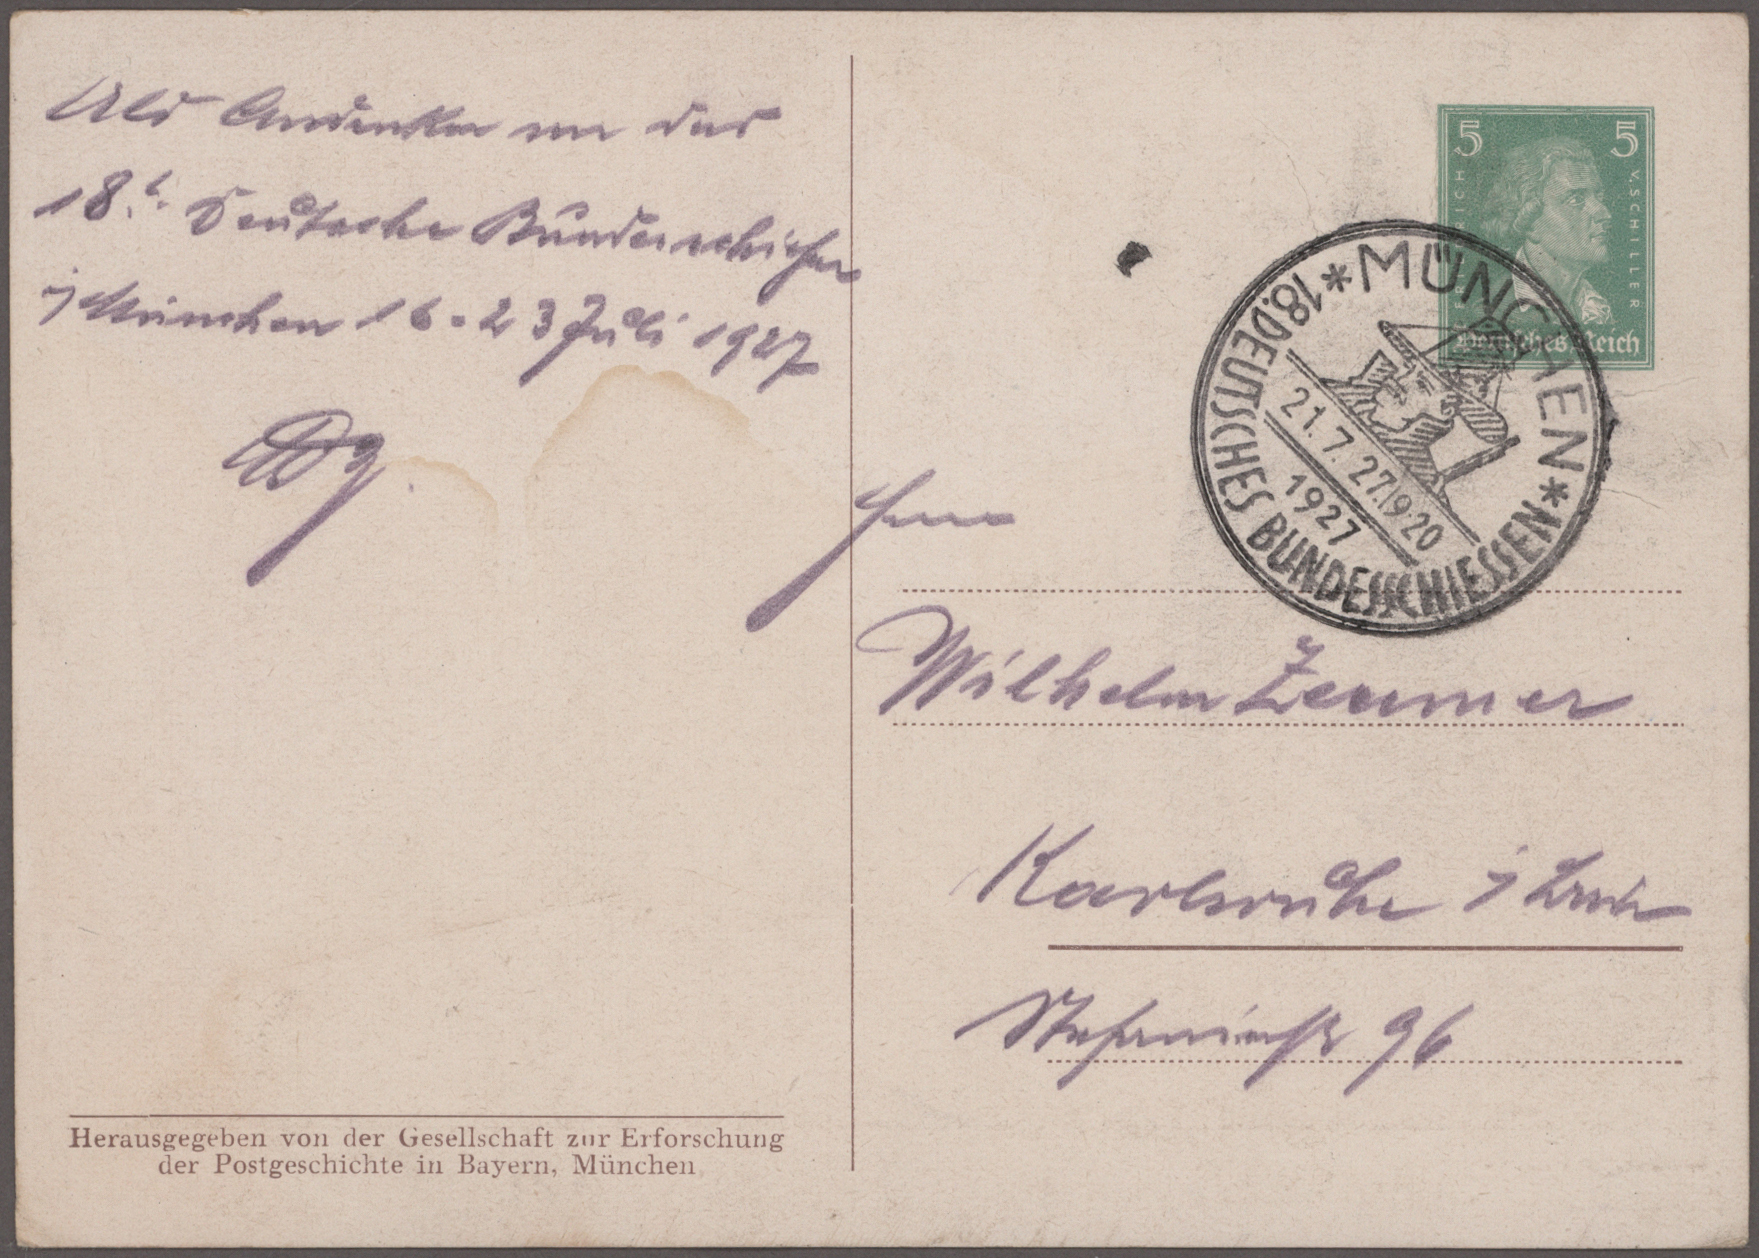 Als Andenken an das
18.t. Deutsche Bundesschießen
i München 16-23 Juli 1927
Herrn
Wilhelm Zeumer
Karlsruhe i
96
5 5
V. SCHILLER
Deutsches Reich
* MÜNCHEN *
18. DEUTSCHES BUNDESSCHIESSEN
21.7.27.19-20
1927
Herausgegeben von der Gesellschaft zur Erforschung
der Postgeschichte in Bayern, München